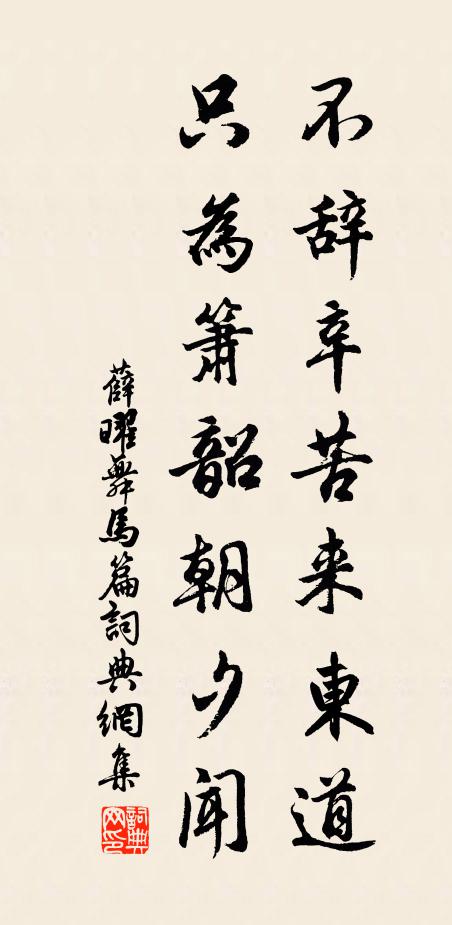 不辞辛苦来東道
只為簫韶朝夕闻
薛曜舞馬篇詞典網集
詞典网印